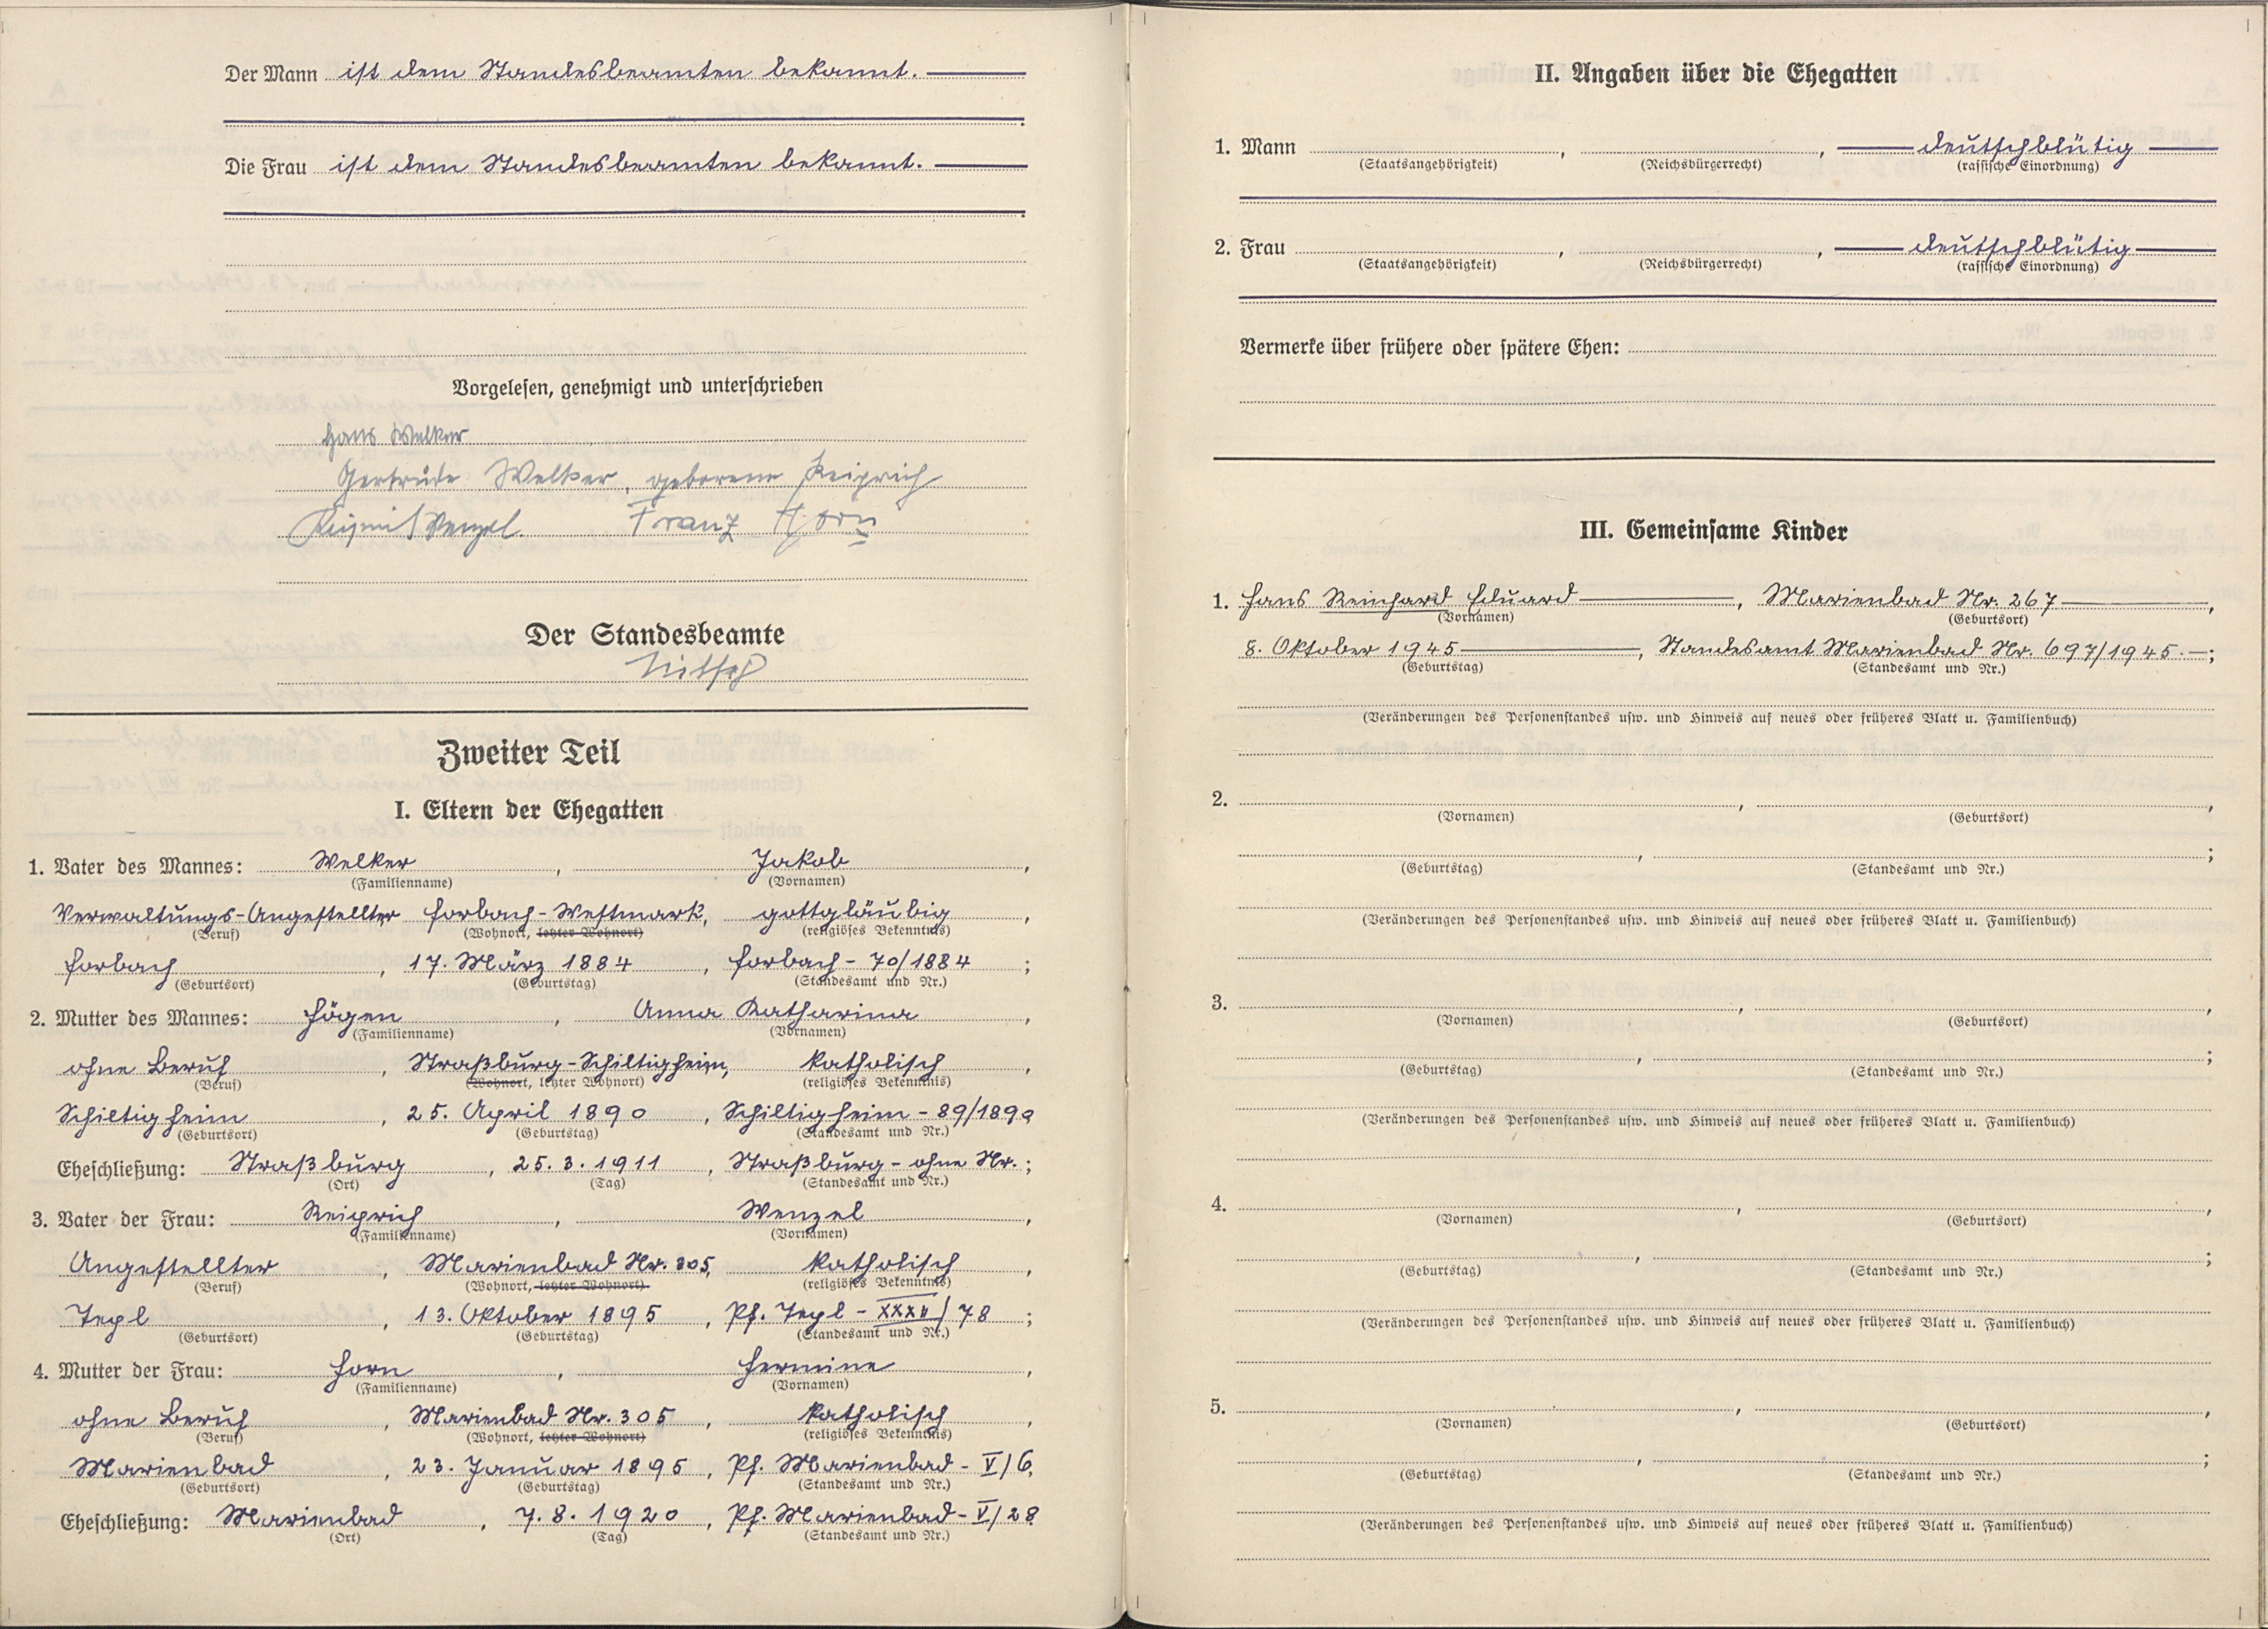 Der Mann ist dem Standesbeamten bekannt.
Die Frau ist dem Standesbeamten bekannt.
Vorgelesen, genehmigt und unterschrieben
Hans Welker
Gertrude Welker, geborene Reiprich
Wenzel. Franz Horn
Der Standesbeamte
Zweiter Teil
I. Eltern der Ehegatten
1. Vater des Mannes: Welker, Jakob,
(Familienname) (Vornamen)
Verwaltungs-Angestellter Forbach-Westmark, gottgläubig,
(Beruf) (Wohnort, letzter Wohnort) (religiöses Bekenntnis)
Forbach, 17. März 1884, Forbach - 70/1884;
(Geburtsort) (Geburtstag) (Standesamt und Nr.)
2. Mutter des Mannes: Högen, Anna Katharina,
(Familienname) (Vornamen)
ohne Beruf, Straßburg-Schiltigheim, katholisch,
(Beruf) (Wohnort, letzter Wohnort) (religiöses Bekenntnis)
Schiltigheim, 25. April 1890, Schiltigheim - 89/1890
(Geburtsort) (Geburtstag) (Standesamt und Nr.)
Eheschließung: Straßburg, 25.3.1911, Straßburg - ohne Nr.;
(Ort) (Tag) (Standesamt und Nr.)
3. Vater der Frau: Reiprich, Wenzel,
(Familienname) (Vornamen)
Angestellter, Marienbad Nr. 305, katholisch,
(Beruf) (Wohnort, letzter Wohnort) (religiöses Bekenntnis)
Tepl, 13. Oktober 1895, Pf. Tepl - XXXII/78;
(Geburtsort) (Geburtstag) (Standesamt und Nr.)
4. Mutter der Frau: Horn, Hermine,
(Familienname) (Vornamen)
ohne Beruf, Marienbad Nr. 305, katholisch,
(Beruf) (Wohnort, letzter Wohnort) (religiöses Bekenntnis)
Marienbad, 23. Januar 1895, Pf. Marienbad - V/6,
(Geburtsort) (Geburtstag) (Standesamt und Nr.)
Eheschließung: Marienbad, 7.8.1920, Pf. Marienbad - V/28
(Ort) (Tag) (Standesamt und Nr.)
II. Angaben über die Ehegatten
1. Mann , , deutschblütig
(Staatsangehörigkeit) (Reichsbürgerrecht) (rassische Einordnung)
2. Frau , , deutschblütig
(Staatsangehörigkeit) (Reichsbürgerrecht) (rassische Einordnung)
Vermerke über frühere oder spätere Ehen:
III. Gemeinsame Kinder
1. Hans Reinhard Eduard, Marienbad Nr. 267,
(Vornamen) (Geburtsort)
8. Oktober 1945, Standesamt Marienbad Nr. 697/1945.;
(Geburtstag) (Standesamt und Nr.)
(Veränderungen des Personenstandes usw. und Hinweis auf neues oder früheres Blatt u. Familienbuch)
2. , ,
(Vornamen) (Geburtsort)
, ;
(Geburtstag) (Standesamt und Nr.)
(Veränderungen des Personenstandes usw. und Hinweis auf neues oder früheres Blatt u. Familienbuch)
3. , ,
(Vornamen) (Geburtsort)
, ;
(Geburtstag) (Standesamt und Nr.)
(Veränderungen des Personenstandes usw. und Hinweis auf neues oder früheres Blatt u. Familienbuch)
4. , ,
(Vornamen) (Geburtsort)
, ;
(Geburtstag) (Standesamt und Nr.)
(Veränderungen des Personenstandes usw. und Hinweis auf neues oder früheres Blatt u. Familienbuch)
5. , ,
(Vornamen) (Geburtsort)
, ;
(Geburtstag) (Standesamt und Nr.)
(Veränderungen des Personenstandes usw. und Hinweis auf neues oder früheres Blatt u. Familienbuch)